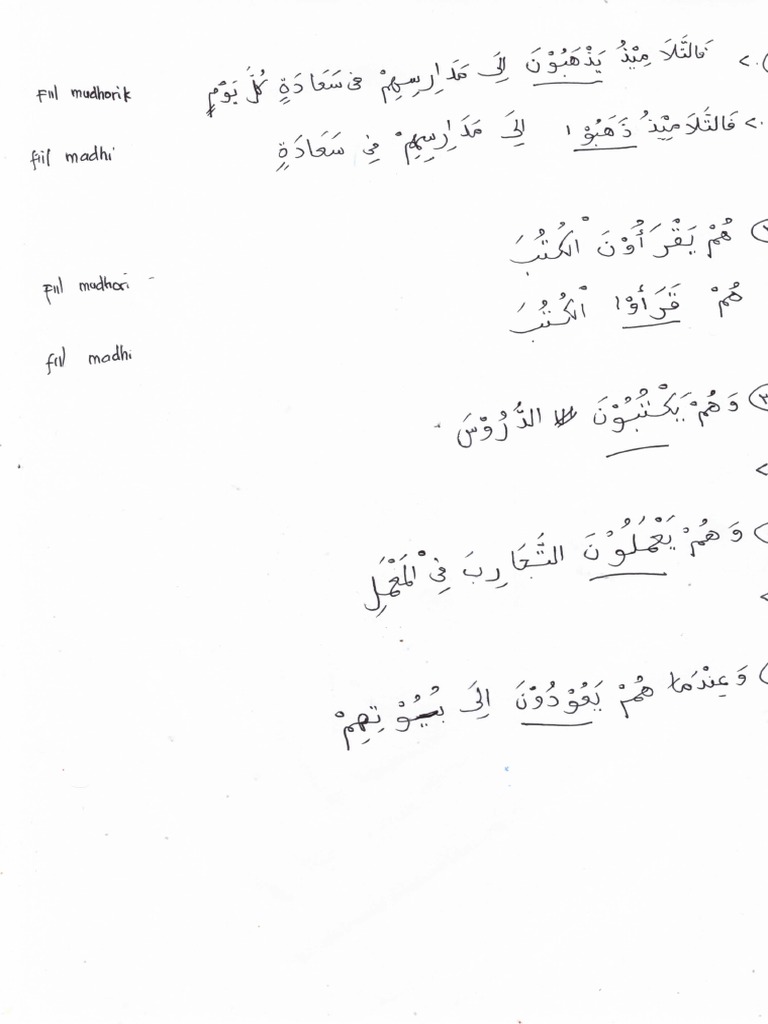 فَالتَّلَامِيْذُ يَذْهَبُوْنَ اِلَى مَدَارِسِهِمْ فى سَعَادَةٍ كُلَّ يَوْمٍ
fiil mudhorik
فَالتَّلَامِيْذُ ذَهَبُوْا اِلَى مَدَارِسِهِمْ فِي سَعَادَةٍ
fiil madhi
هُمْ يَقْرَأُوْنَ الْكُتُبَ
fiil mudhori
هُمْ قَرَأُوْا الْكُتُبَ
fiil madhi
٣ وَهُمْ يَكْتُبُوْنَ الدُّرُوْسَ
وَهُمْ يَعْمَلُوْنَ التَّجَارِبَ فِي الْمَعْمَلِ
وَعِنْدَمَا هُمْ يَعُوْدُوْنَ اِلَى بُيُوْتِهِمْ